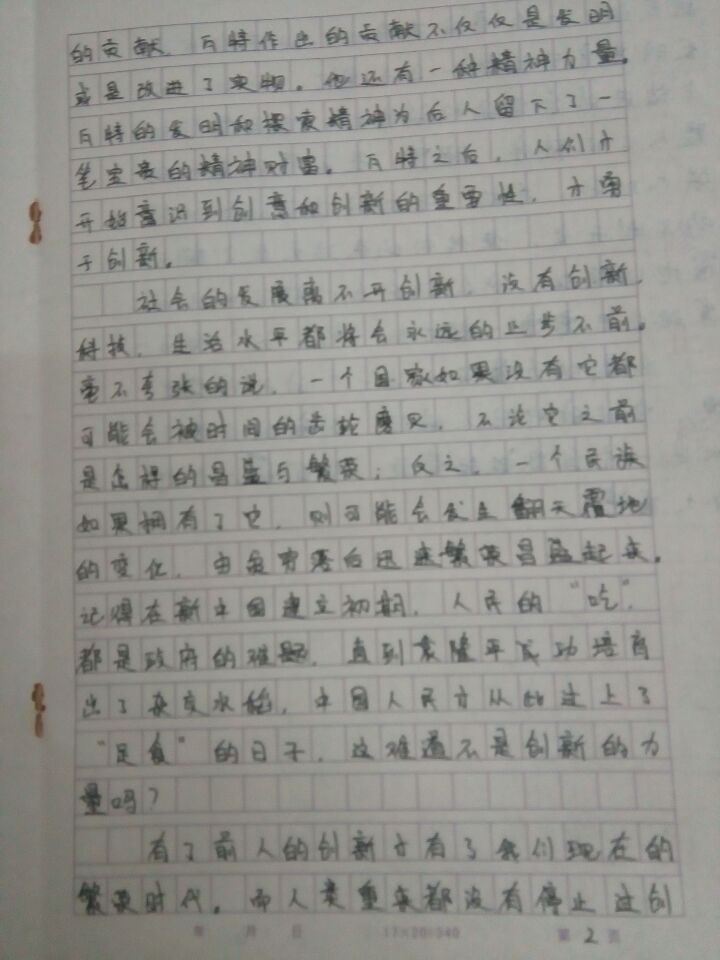 的贡献，瓦特作出的贡献不仅仅是发明
或是改进了实物。他还有一种精神力量。
瓦特的发明和探索精神为后人留下了一
笔宝贵的精神财富。瓦特之后，人们才
开始意识到创意和创新的重要性，才勇
于创新。
社会的发展离不开创新，没有创新，
科技，生活水平都将会永远的止步不前。
毫不夸张的说，一个国家如果没有它都
可能会被时间的齿轮磨灭，不论它之前
是怎样的昌盛与繁荣；反之，一个民族
如果拥有了它，则可能会发生翻天覆地
的变化，由贫穷落后迅速繁荣昌盛起来。
记得在新中国建立初期，人民的“吃”，
都是政府的难题，直到袁隆平成功培育
出了杂交水稻，中国人民才从此过上了
“足食”的日子，这难道不是创新的力
量吗？
有了前人的创新才有了我们现在的
繁荣时代。而人类重来都没有停止过创
年 月 日 17×20=340 第 2 页